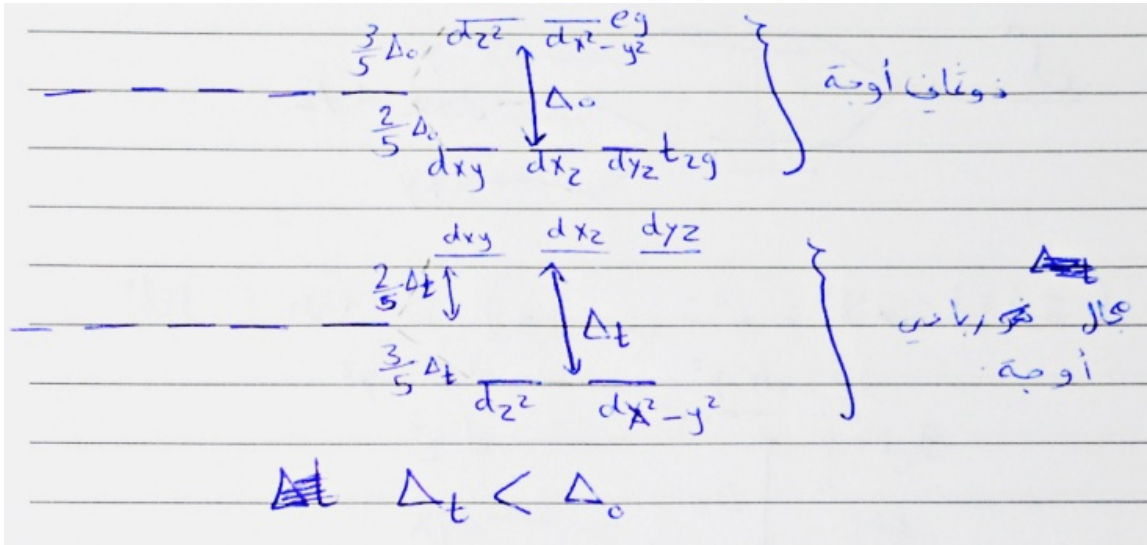 3/5 Δo dz² dx²-y² eg
Δo
2/5 Δo
dxy dxz dyz t2g
ذو ثماني أوجة
dxy dxz dyz
2/5 Δt
Δt
3/5 Δt
dz² dx²-y²
مجال رباعي
أوجة
Δt < Δo